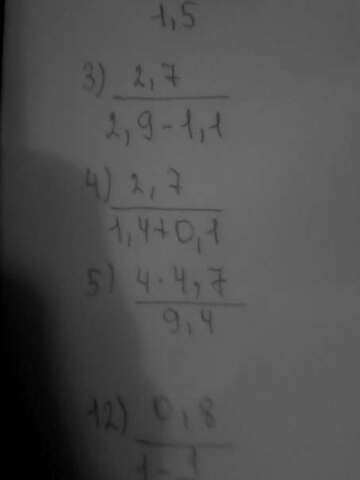 1,5
3) 2,7
2,9-1,1
4) 2,7
1,4+0,1
5) 4·4,7
9,4
12) 0,8
1-1